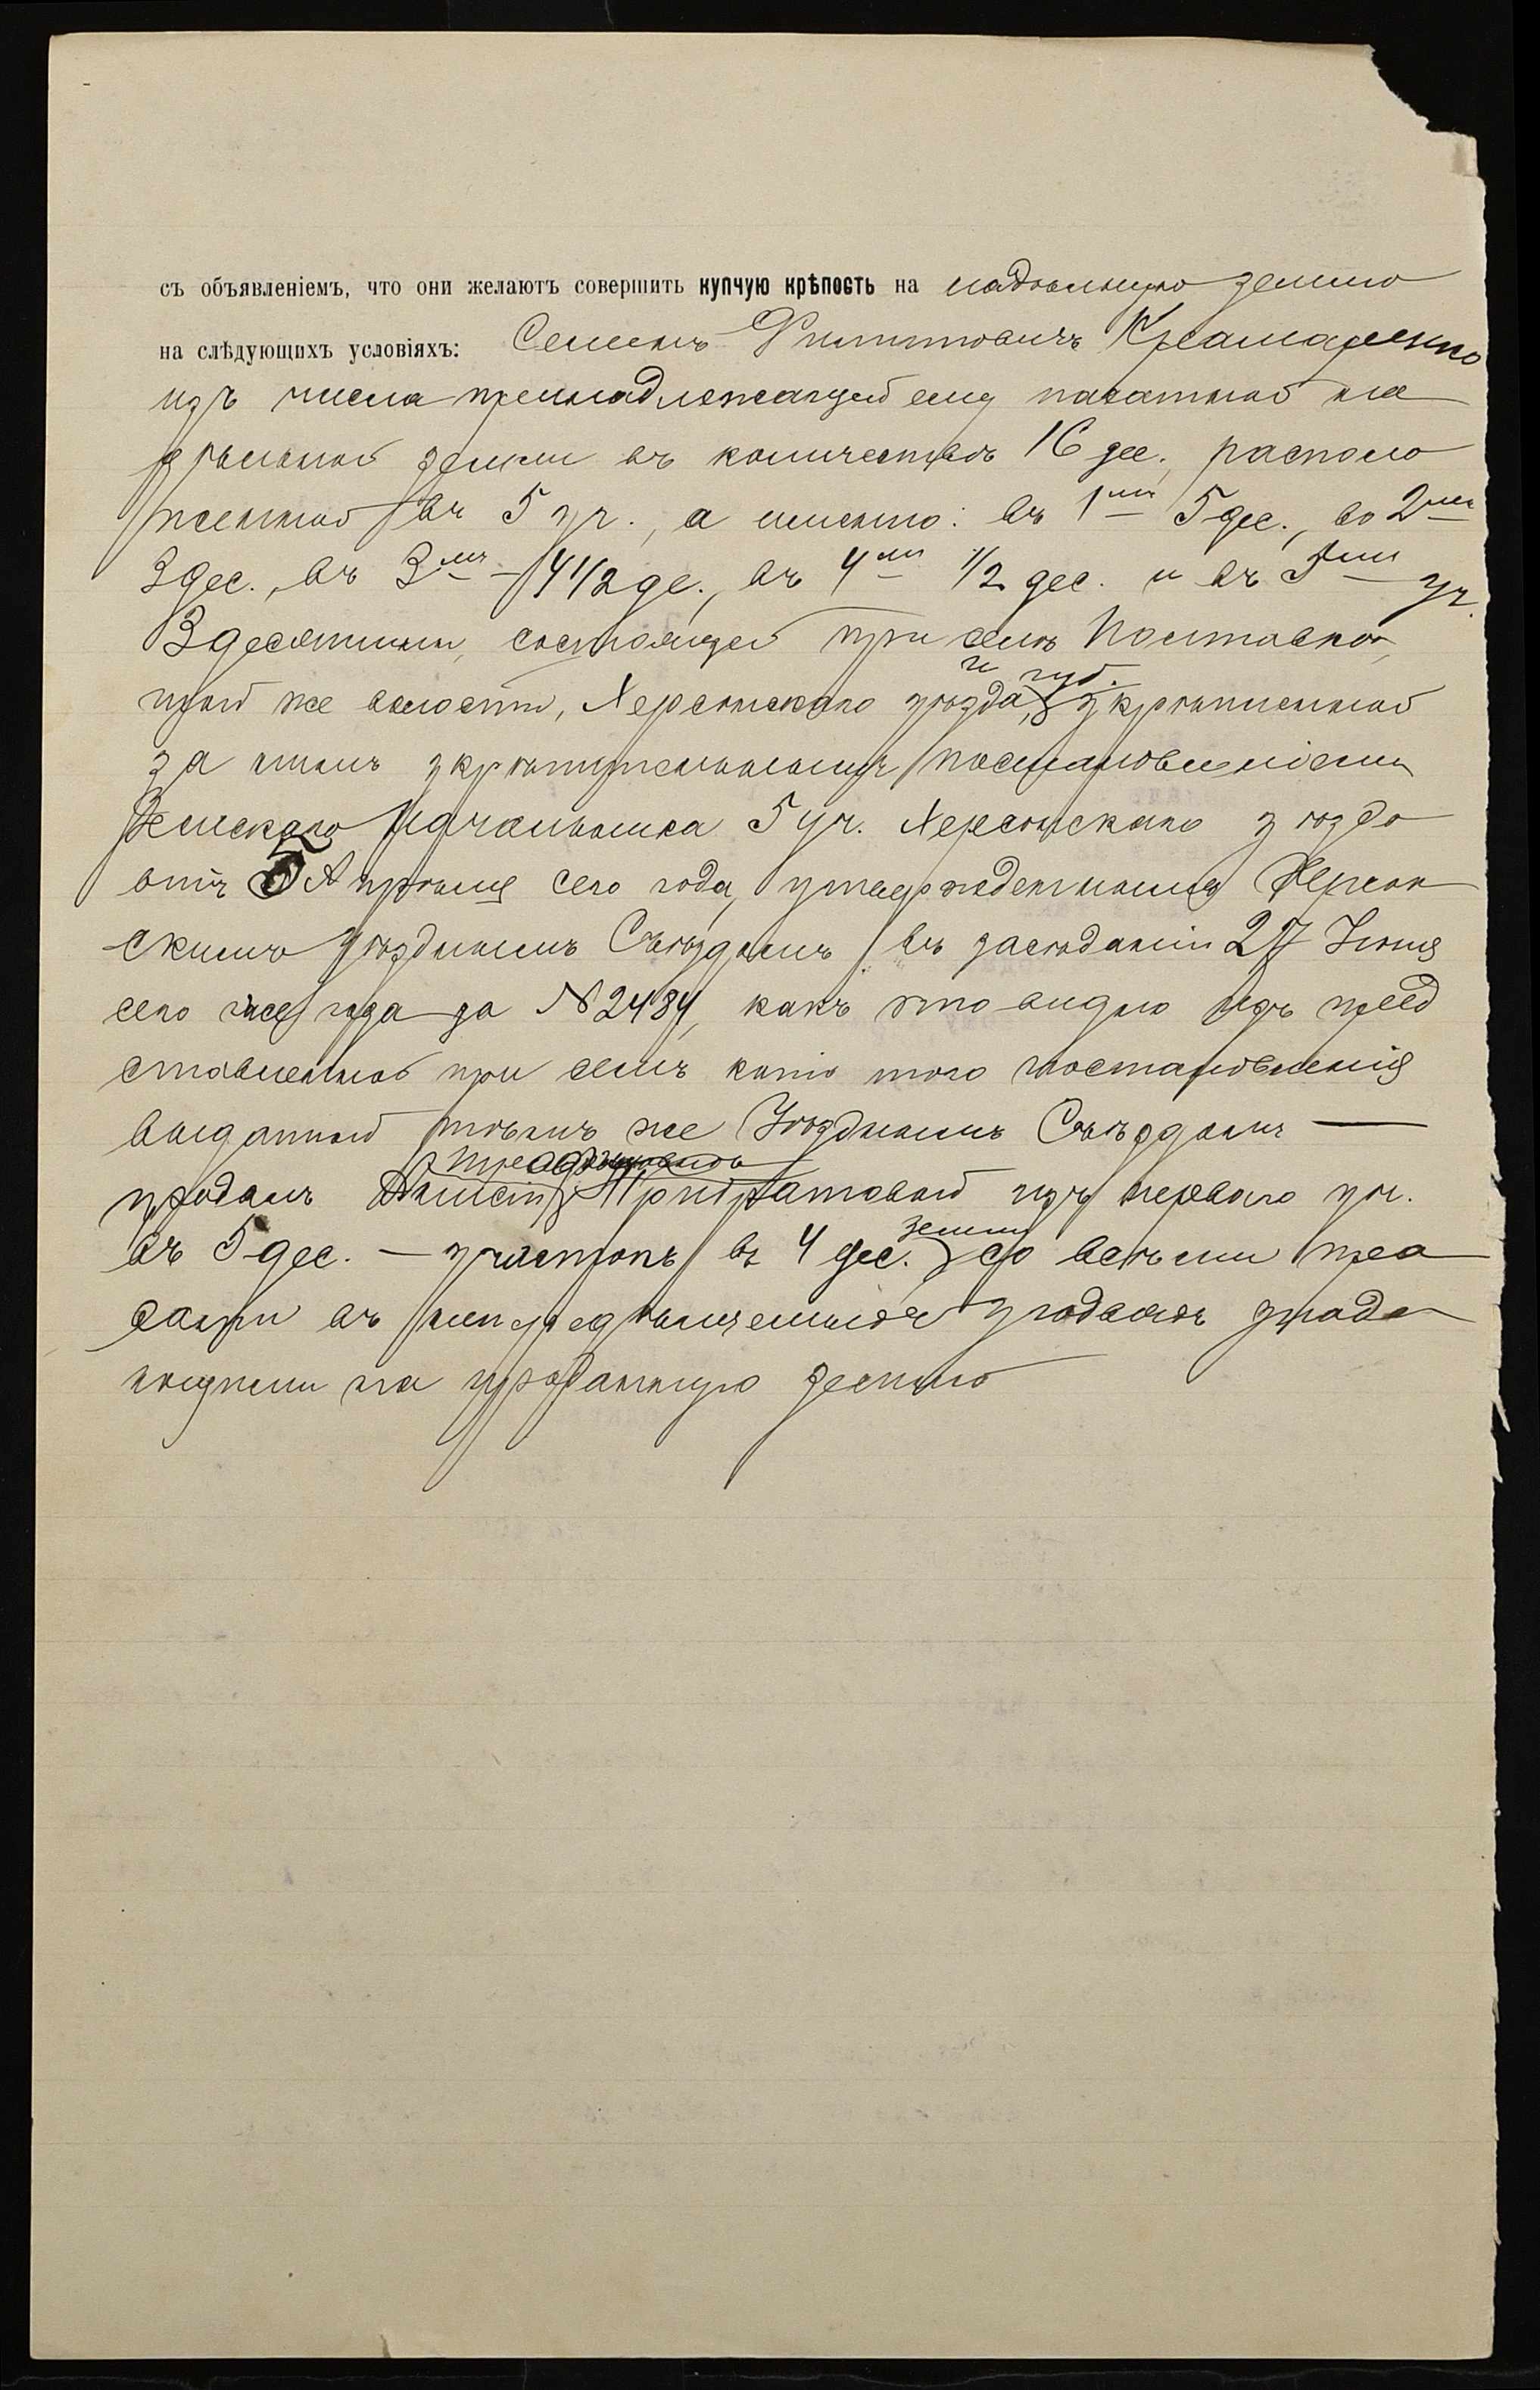 съ объявленіемъ, что они желаютъ совершить купчую крѣпость на надѣльную землю
на слѣдующихъ условіяхъ: Семенъ Филипповичъ Крамаренко
изъ числа принадлежащей ему пахатной на
дѣльной земли въ количествѣ 16 дес., располо
женной въ 5 уч., а именно: въ 1мъ 5 дес., во 2мъ
3 дес., въ 3мъ – 4 1/2 де., въ 4мъ 1/2 дес. и въ 5мъ уч.
3 десятины, состоящей при селѣ
той же волости, Херсонскаго уѣзда, укрѣпленной
и губ.
за нимъ укрѣпительнымъ постановленіемъ
Земскаго Начальника 5 уч. Херсонскаго уѣзда
отъ 5 Апрѣля сего года, утвержденнымъ Херсон
скимъ Уѣзднымъ Съѣздомъ въ засѣданіи 27 Іюня
сего же года за № 2484, какъ это видно изъ пред
ставленной при семъ копіи того постановленія
выданной тѣмъ же Уѣзднымъ Съѣздомъ —
продалъ изъ перваго уч.
въ 5 дес. — участокъ въ 4 дес. со всѣми
земли
въ угодьяхъ
на проданную землю